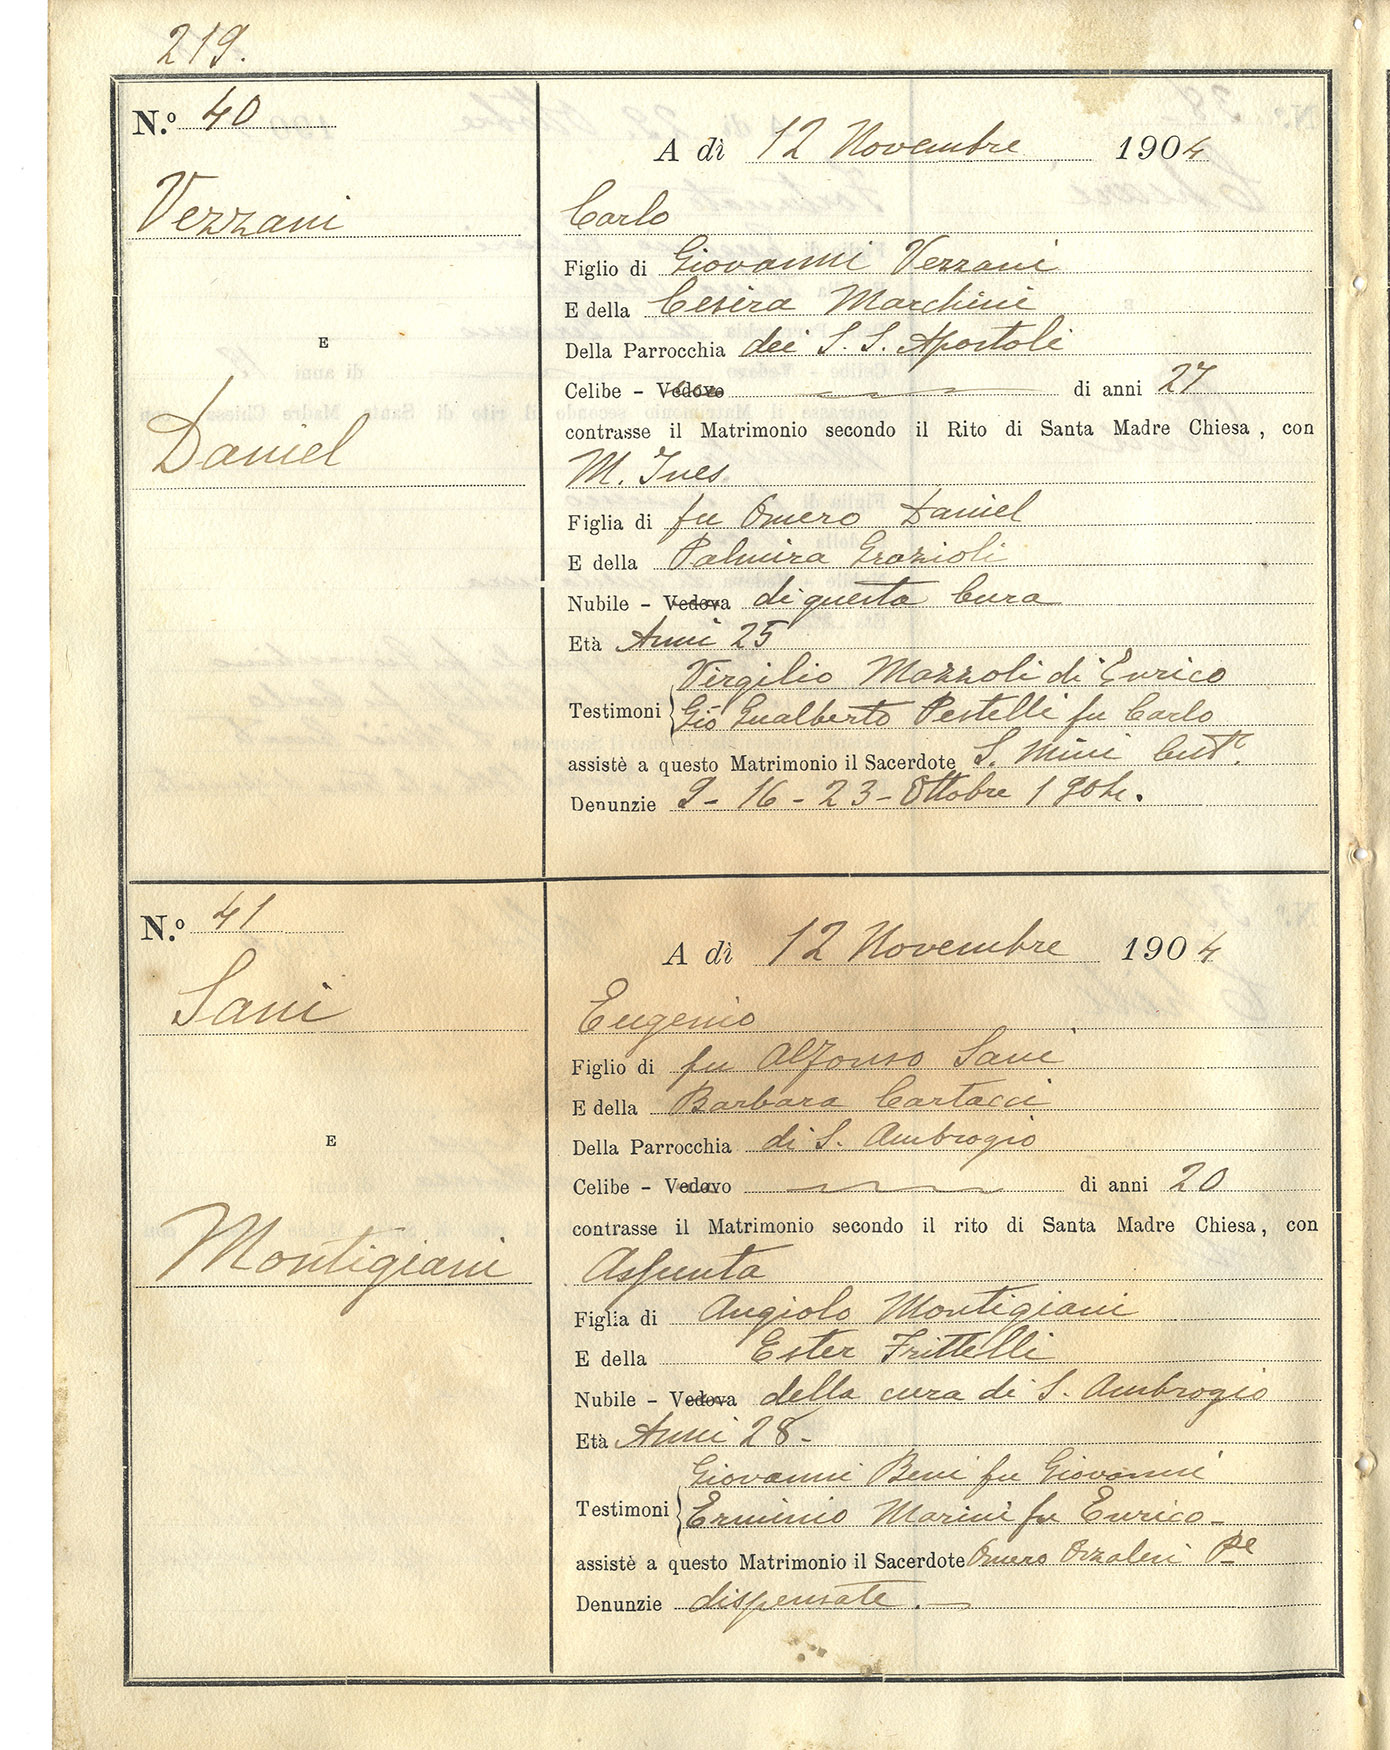 219.
N.º 40
A dì 12 Novembre 1904
Vezzani
Carlo
Figlio di Giovanni Vezzani
E della Cesira Marchini
Della Parrocchia dei S. S. Apostoli
E
Celibe - Vedovo di anni 27
contrasse il Matrimonio secondo il Rito di Santa Madre Chiesa, con
Daniel
M. Ines
Figlia di fu Omero Daniel
E della Palmira Grazioli
Nubile - Vedova di questa Cura
Età Anni 25
Virgilio Mazzoli di Enrico
Testimoni Gio Gualberto Pestelli fu Carlo
assistè a questo Matrimonio il Sacerdote S. Mini
Denunzie 9 - 16 - 23 - Ottobre 1904.
N.º 41
A dì 12 Novembre 1904
Sani
Eugenio
Figlio di fu Alfonso Sani
E della Barbara Cartacci
Della Parrocchia di S. Ambrogio
E
Celibe - Vedovo di anni 20
contrasse il Matrimonio secondo il rito di Santa Madre Chiesa, con
Montigiani
Assunta
Figlia di Angiolo Montigiani
E della Ester Frittelli
Nubile - Vedova della cura di S. Ambrogio
Età Anni 28 -
Giovanni Beni fu Giovanni
Testimoni Erminio Marini fu Enrico -
assistè a questo Matrimonio il Sacerdote Omero Orzalesi Pe
Denunzie dispensate. -